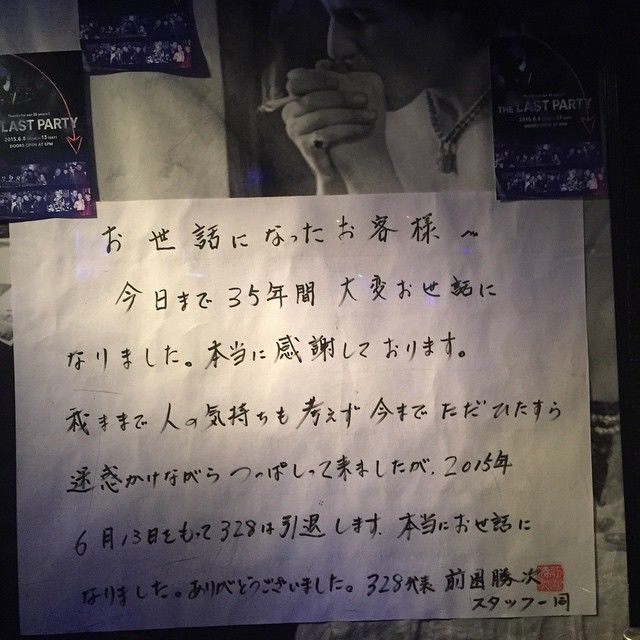 THE LAST PARTY
2015.6.8
13
DOORS OPEN AT 5PM
LAST PARTY
2015.6.8
13
DOORS OPEN AT 5PM
お世話になったお客様へ
今日まで35年間 大変お世話に
なりました。本当に感謝しております。
我ままで人の気持ちも考えず今までただひたすら
迷惑かけながらつっぱしって来ましたが、2015年
6月13日をもって328は引退します。本当にお世話に
なりました。ありがとうございました。328代表 前田勝次
スタッフ一同